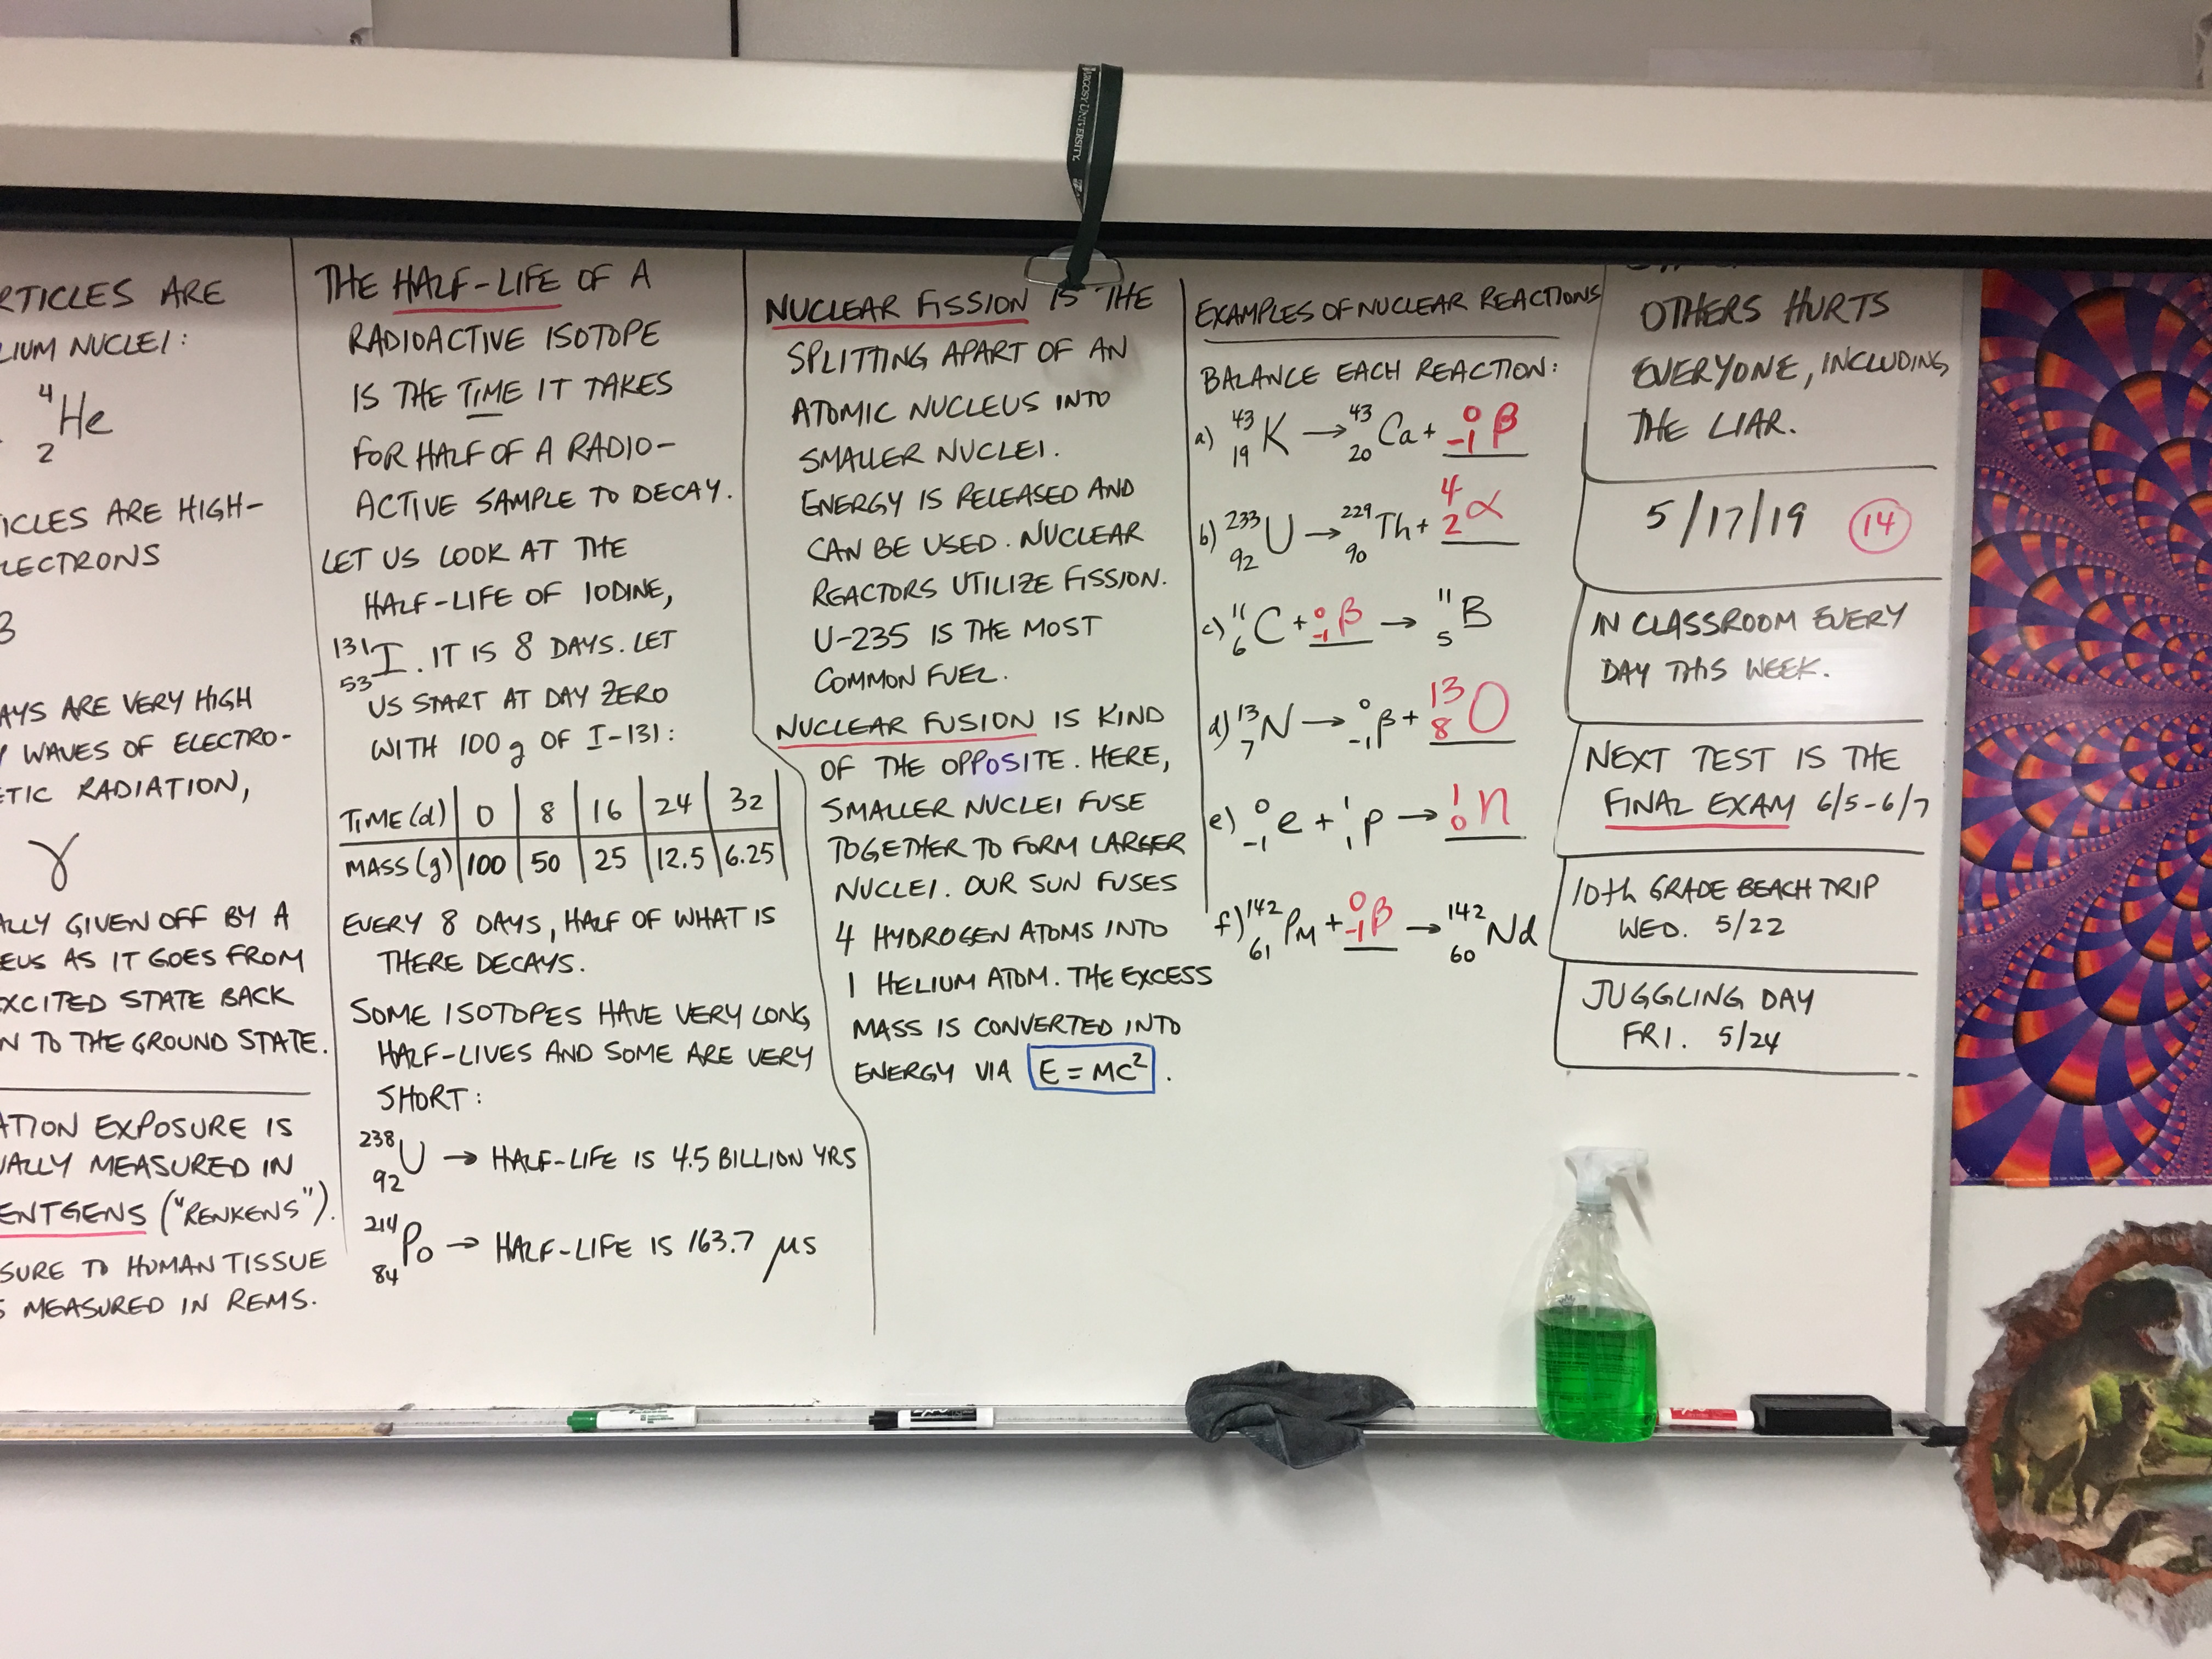 ARGOSY UNIVERSITY
RTICLES ARE
LIUM NUCLEI:
4
2 He
TICLES ARE HIGH-
LECTRONS
AYS ARE VERY HIGH
Y WAVES OF ELECTRO-
ETIC RADIATION,
γ
ALLY GIVEN OFF BY A
EUS AS IT GOES FROM
EXCITED STATE BACK
N TO THE GROUND STATE.
ATION EXPOSURE IS
UALLY MEASURED IN
ENTGENS ("RENKENS").
SURE TO HUMAN TISSUE
S MEASURED IN REMS.
THE HALF-LIFE OF A
RADIOACTIVE ISOTOPE
IS THE TIME IT TAKES
FOR HALF OF A RADIO-
ACTIVE SAMPLE TO DECAY.
LET US LOOK AT THE
HALF-LIFE OF IODINE,
131 53 I. IT IS 8 DAYS. LET
US START AT DAY ZERO
WITH 100 g OF I-131:
TIME (d) 0 8 16 24 32
MASS (g) 100 50 25 12.5 6.25
EVERY 8 DAYS, HALF OF WHAT IS
THERE DECAYS.
SOME ISOTOPES HAVE VERY LONG
HALF-LIVES AND SOME ARE VERY
SHORT:
238 92 U → HALF-LIFE IS 4.5 BILLION YRS
214 84 Po → HALF-LIFE IS 163.7 μs
NUCLEAR FISSION IS THE
SPLITTING APART OF AN
ATOMIC NUCLEUS INTO
SMALLER NUCLEI.
ENERGY IS RELEASED AND
CAN BE USED. NUCLEAR
REACTORS UTILIZE FISSION.
U-235 IS THE MOST
COMMON FUEL.
NUCLEAR FUSION IS KIND
OF THE OPPOSITE. HERE,
SMALLER NUCLEI FUSE
TOGETHER TO FORM LARGER
NUCLEI. OUR SUN FUSES
4 HYDROGEN ATOMS INTO
1 HELIUM ATOM. THE EXCESS
MASS IS CONVERTED INTO
ENERGY VIA E = MC².
EXAMPLES OF NUCLEAR REACTIONS
BALANCE EACH REACTION:
a) 43 19 K → 43 20 Ca + 0 -1 β
b) 233 92 U → 229 90 Th + 4 2 α
c) 11 6 C + 0 -1 β → 11 5 B
d) 13 7 N → 0 -1 β + 13 8 O
e) 0 -1 e + 1 1 p → 1 0 n
f) 142 61 Pm + 0 -1 β → 142 60 Nd
OTHERS HURTS
EVERYONE, INCLUDING
THE LIAR.
5/17/19 14
IN CLASSROOM EVERY
DAY THIS WEEK.
NEXT TEST IS THE
FINAL EXAM 6/5-6/7
10th GRADE BEACH TRIP
WED. 5/22
JUGGLING DAY
FRI. 5/24